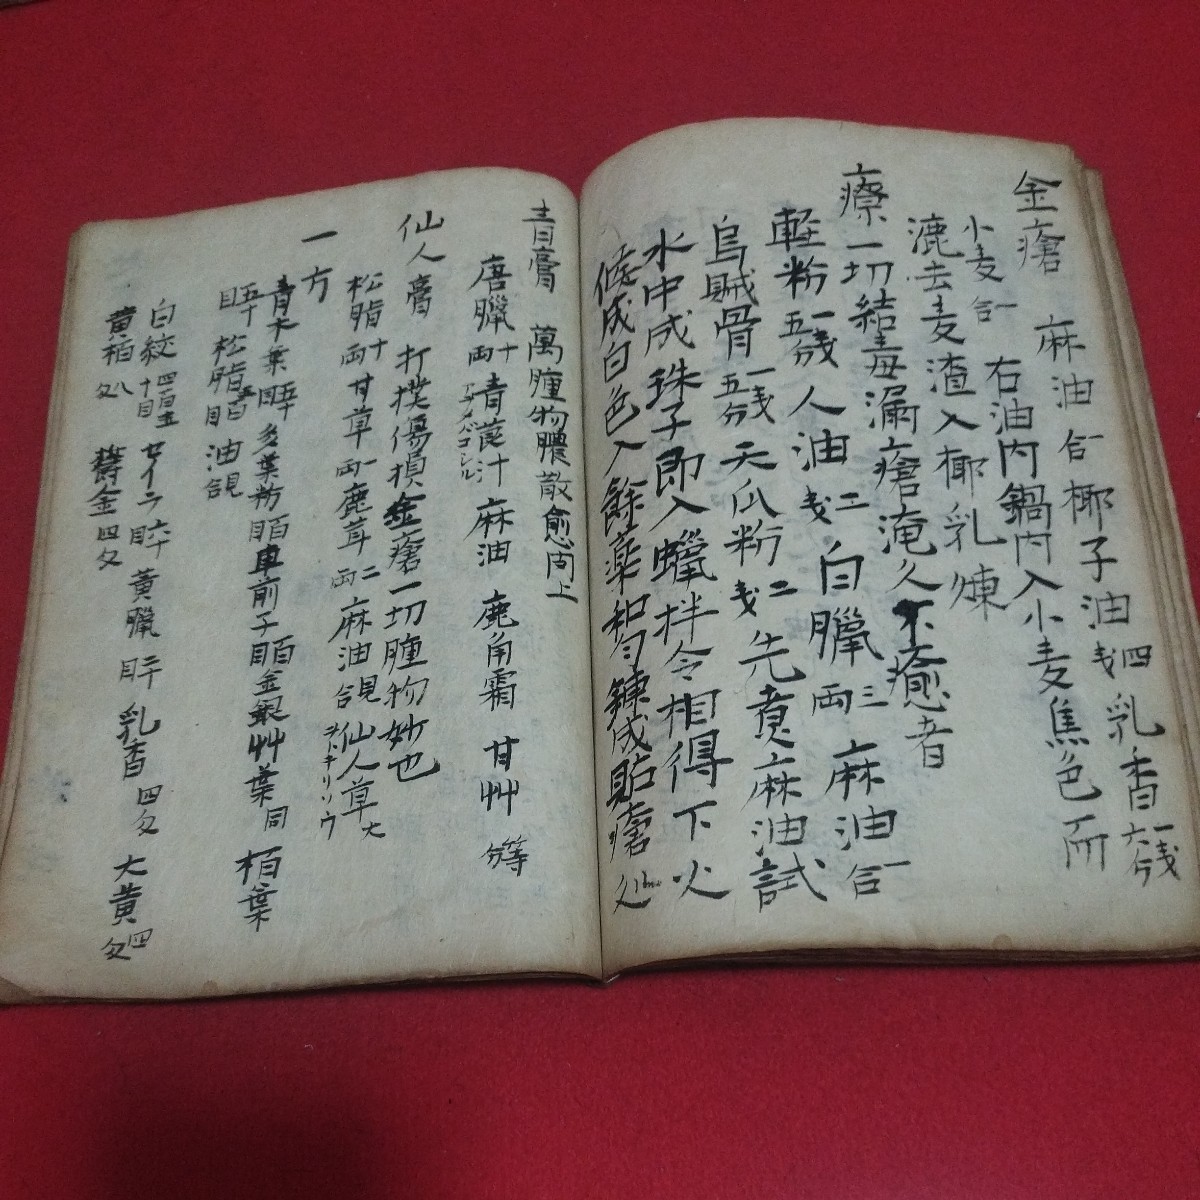 金瘡 麻油一合 椰子油四戔 乳香一戔六分
小麦一合 右油内鍋内入小麦焦色而
漉去麦渣入椰乳煉
療一切結毒漏瘡淹久不癒者
軽粉一戔五分 人油二戔 白臘三両 麻油一合
烏賊骨一戔五分 天瓜粉二戔 先煮麻油試
水中成珠子即入蠟拌令相得下火
候成白色入餘薬和匀錬成貼瘡処
青膏 萬腫物膿散愈同上
唐臘十両 青菔汁 麻油 鹿角霜 甘艸 等分
仙人膏 打撲傷損金瘡一切腫物妙也
松脂十両 甘草一両 鹿茸二両 麻油 仙人草大 ヲトキリソウ
一方
青木葉 多葉粉 車前子 金銀艸葉同 栢葉
松脂 油
白絞四百五十目 セイラ 黄臘 乳香四匁 大黄四匁
黄栢八匁 欝金四匁